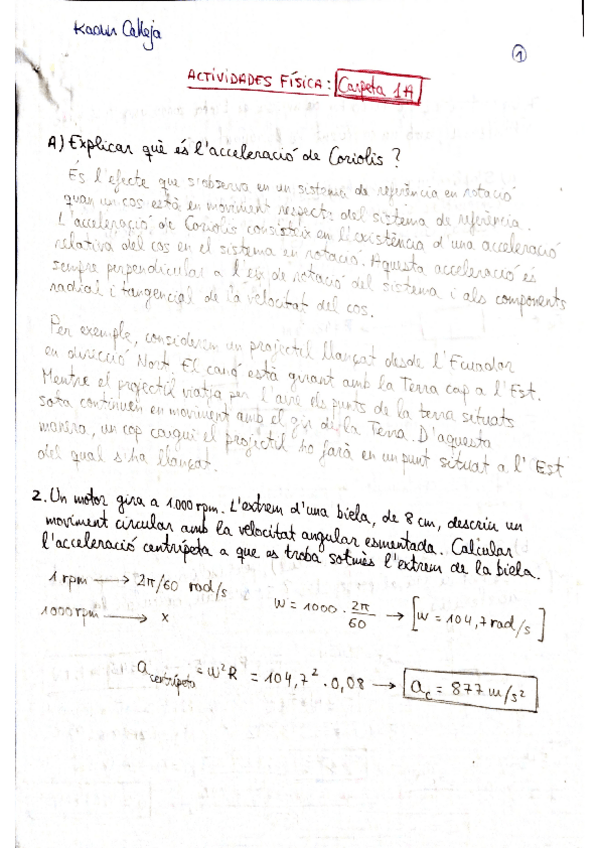 Kaouis Calleja
1
ACTIVIDADES FÍSICA: Carpeta 1A
A) Explicar què és l'acceleració de Coriolis?
És l'efecte que s'observa en un sistema de referència en rotació
quan un cos està en moviment respecte del sistema de referència.
L'acceleració de Coriolis consisteix en l'existència d'una acceleració
relativa del cos en el sistema en rotació. Aquesta acceleració és
sempre perpendicular a l'eix de rotació del sistema i als components
radial i tangencial de la velocitat del cos.
Per exemple, considerem un projectil llançat desde l'Ecuador
en direcció Nort. El canó està girant amb la Terra cap a l'Est.
Mentre el projectil viatja per l'aire els punts de la terra situats
sota continuen en moviment amb el gir de la Terra. D'aquesta
manera, un cop caigui el projectil ho farà en un punt situat a l'Est
del qual s'ha llançat.
2. Un motor gira a 1.000 rpm. L'extrem d'una biela, de 8 cm, descriu un
moviment circular amb la velocitat angular esmentada. Calcular
l'acceleració centrípeta a que es troba sotmès l'extrem de la biela.
1 rpm → 2π/60 rad/s
1000 rpm → x
w = 1000 · 2π/60 → [w = 104,7 rad/s]
a centrípeta = w²R = 104,7² · 0,08 → a_c = 877 m/s²